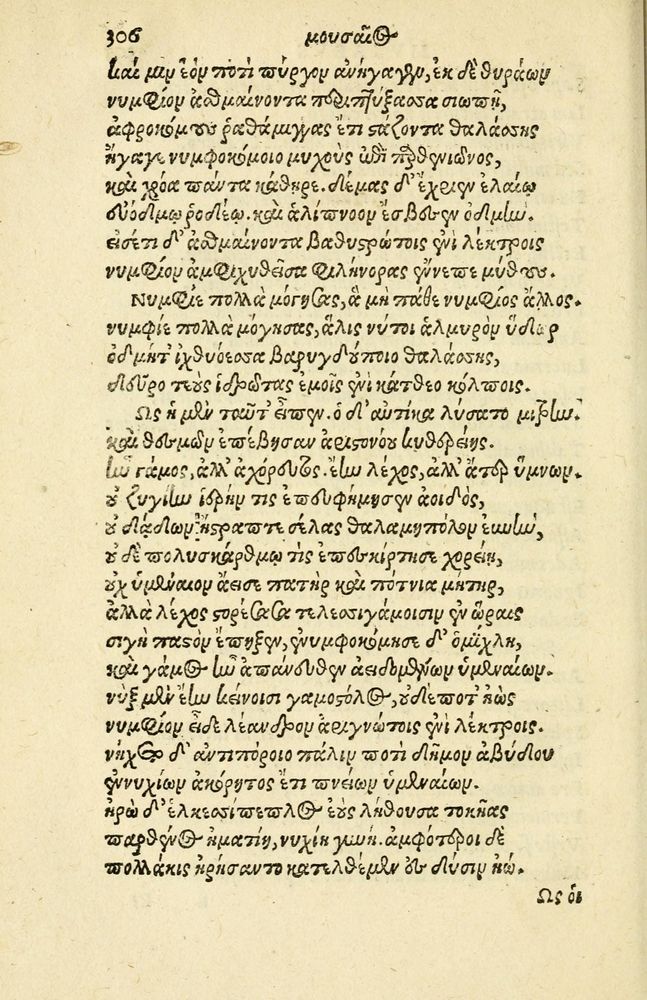 306 μουσαῖος
καί μιν ἑὸν ποτὶ πύργον ἀνήγαγεν, ἐκ δὲ θυράων
νυμφίον ἀσθμαίνοντα περιπτύξασα σιωπῇ,
ἀφροκόμους ῥαθάμιγγας ἔτι στάζοντα θαλάσσης
ἤγαγε νυμφοκόμοιο μυχοὺς ἐπὶ παρθενεῶνος,
καὶ χρόα πάντα κάθηρε. δέμας δ' ἔχριεν ἐλαίῳ
εὐόδμῳ ῥοδέῳ. καὶ ἁλίπνοον ἔσβεσεν ὀδμήν.
εἰσέτι δ' ἀσθμαίνοντα βαθυστρώτοις ἐνὶ λέκτροις
νυμφίον ἀμφιχυθεῖσα φιλήνορας ἔννεπε μύθους.
Νυμφίε πολλὰ μόγησας, ἃ μὴ πάθε νυμφίος ἄλλος.
νυμφίε πολλὰ μόγησας, ἅλις νύ τοι ἁλμυρὸν ὕδωρ
ὀδμήτ' ἰχθυόεσσα βαρυγδούποιο θαλάσσης,
δεῦρο τεοὺς ἱδρῶτας ἐμοῖς ἐνὶ κάτθεο κόλποις.
Ως ἡ μὲν ταῦτ' εἶπεν. ὁ δ' αὐτίκα λύσατο μίτρην.
καὶ θεσμῶν ἐπέβησαν ἀριστονόου κυθερείης.
ἦν γάμος, ἀλλ' ἀχόρευτος. ἔην λέχος, ἀλλ' ἄτερ ὕμνων.
οὐ ζυγίην ἱερήν τις ἐπευφήμησεν ἀοιδὸς,
οὐ δαΐδων ἤστραπτε σέλας θαλαμηπόλον εὐνήν,
οὐδὲ πολυσκάρθμῳ τὶς ἐπεσκίρτησε χορείῃ,
οὐχ ὑμέναιον ἄεισε πατὴρ καὶ πότνια μήτηρ,
ἀλλὰ λέχος στορέσασα τελεσσιγάμοισιν ἐν ὥραις
σιγὴ παστὸν ἔπηξεν, ἐνυμφοκόμησε δ' ὁμίχλη,
καὶ γάμος ἦν ἀπάνευθεν ἀειδομένων ὑμεναίων.
νὺξ μὲν ἔην κείνοισι γαμοστόλος, οὐδέποτ' ἠὼς
νυμφίον εἶδε λέανδρον ἀριγνώτοις ἐνὶ λέκτροις.
νήχετο δ' ἀντιπόροιο πάλιν ποτὶ δῆμον ἀβύδου
ἐννυχίων ἀκόρητος ἔτι πνείων ὑμεναίων.
ἡρὼ δ' ἑλκεσίπεπλος ἑοὺς λήθουσα τοκῆας
παρθένος ἠματίη, νυχίη γυνή. ἀμφότεροι δὲ
πολλάκις ἠρήσαντο κατελθέμεν ἐς δύσιν ἠῶ.
Ως οἱ